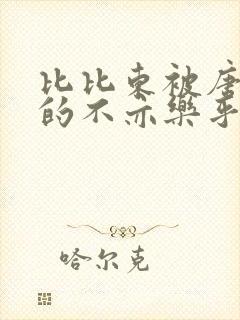 比比东被唐
的不亦乐乎
哈尔克